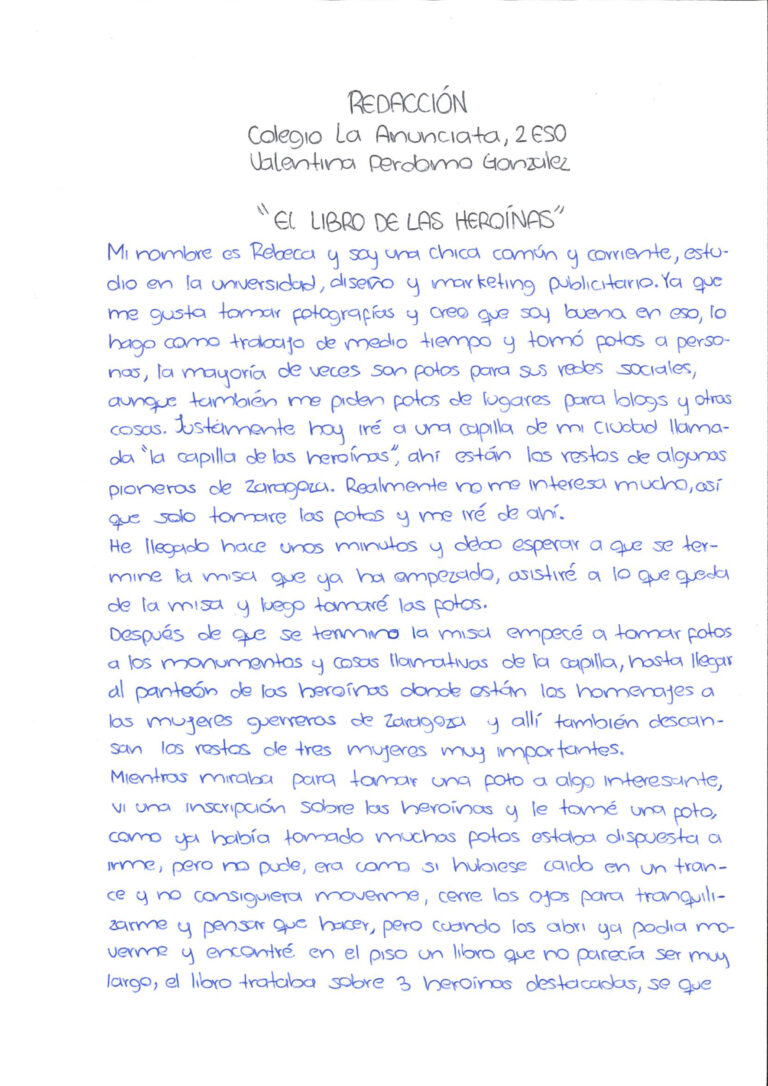 REDACCIÓN
Colegio La Anunciata, 2 ESO
Valentina Perdomo González
"EL LIBRO DE LAS HEROÍNAS"
Mi nombre es Rebeca y soy una chica común y corriente, estu-
dio en la universidad, diseño y marketing publicitario. Ya que
me gusta tomar fotografías y creo que soy buena en eso, lo
hago como trabajo de medio tiempo y tomó fotos a perso-
nas, la mayoría de veces son fotos para sus redes sociales,
aunque también me piden fotos de lugares para blogs y otras
cosas. Justamente hoy iré a una capilla de mi ciudad llama-
da "la capilla de las heroínas", ahí están los restos de algunas
pioneras de Zaragoza. Realmente no me interesa mucho, así
que solo tomare las fotos y me iré de ahí.
He llegado hace unos minutos y debo esperar a que se ter-
mine la misa que ya ha empezado, asistiré a lo que queda
de la misa y luego tomaré las fotos.
Después de que se termino la misa empecé a tomar fotos
a los monumentos y cosas llamativas de la capilla, hasta llegar
al panteón de las heroínas donde están los homenajes a
las mujeres guerreras de Zaragoza y allí también descan-
san los restos de tres mujeres muy importantes.
Mientras miraba para tomar una foto a algo interesante,
vi una inscripción sobre las heroínas y le tomé una foto,
como ya había tomado muchas fotos estaba dispuesta a
irme, pero no pude, era como si hubiese caido en un tran-
ce y no consiguiera moverme, cerre los ojos para tranquili-
zarme y pensar que hacer, pero cuando los abri ya podia mo-
verme y encontré en el piso un libro que no parecía ser muy
largo, el libro trataba sobre 3 heroínas destacadas, se que